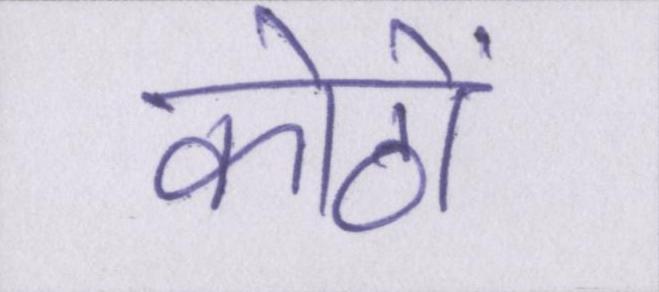 कोठों